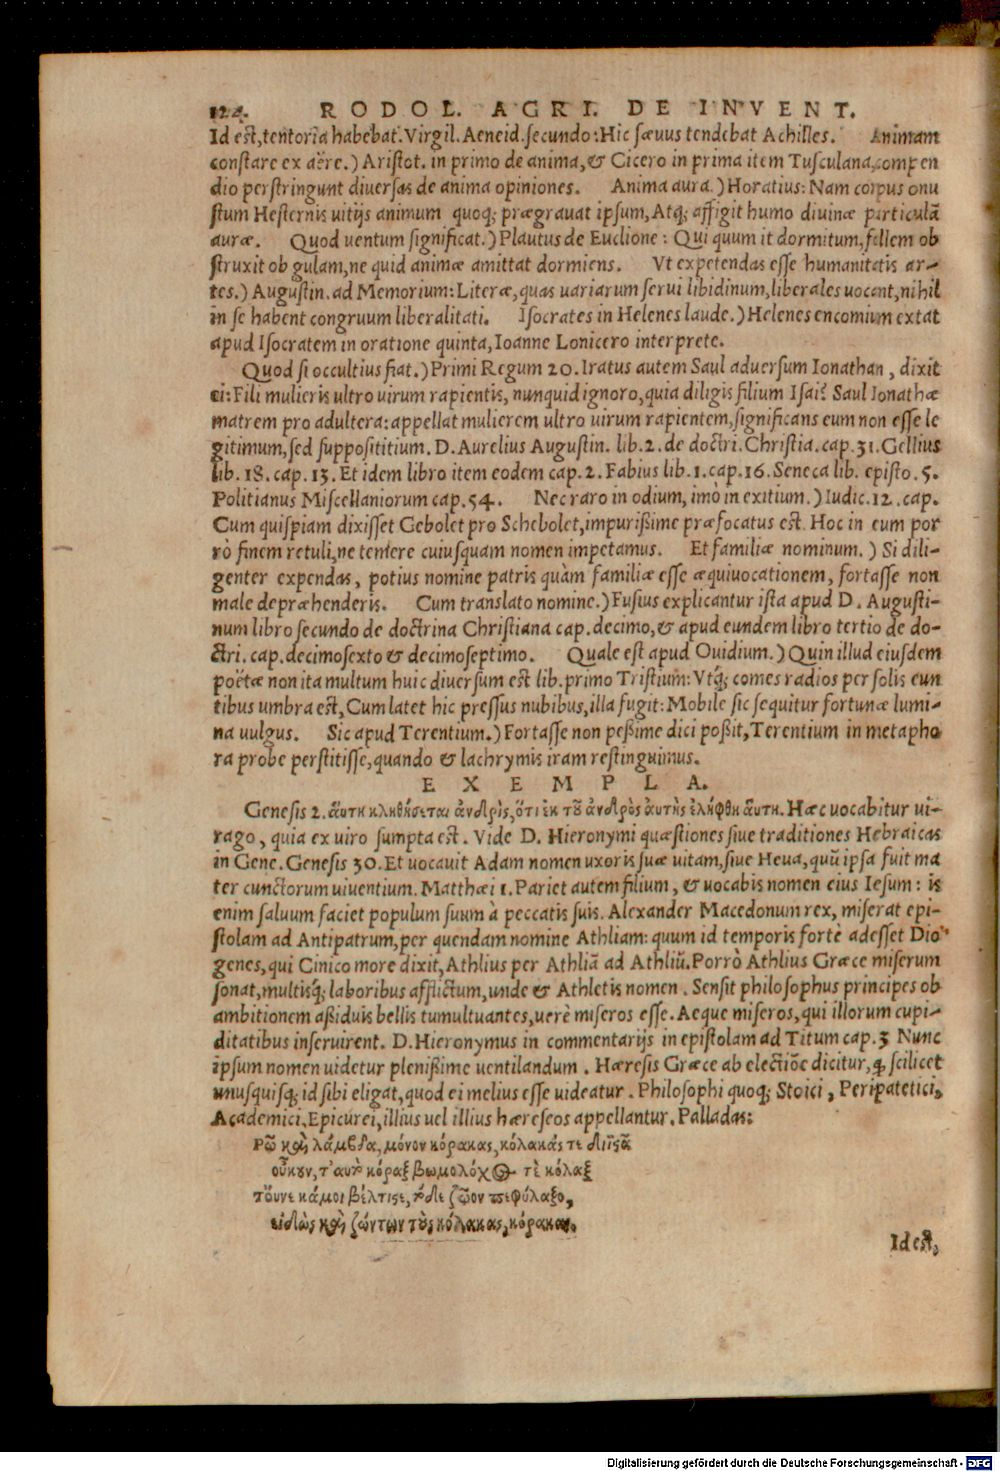 124. RODOL. AGRI. DE INVENT.
Id est, tentoria habebat. Virgil. Aeneid. secundo: Hic sæuus tendebat Achilles. Animam
constare ex aëre.) Aristot. in primo de anima, & Cicero in prima item Tusculana, compen
dio perstringunt diuersas de anima opiniones. Anima aura.) Horatius: Nam corpus onu
stum Hesternis uitijs animum quoq; prægrauat ipsum, Atq; affigit humo diuinæ particulã
auræ. Quod uentum significat.) Plautus de Euclione: Qui quum it dormitum, follem ob
struxit ob gulam, ne quid animæ amittat dormiens. Vt expetendas esse humanitatis ar-
tes.) Augustin. ad Memorium: Literæ, quas uariarum serui libidinum, liberales uocant, nihil
in se habent congruum liberalitati. Isocrates in Helenes laude.) Helenes encomium extat
apud Isocratem in oratione quinta, Ioanne Lonicero interprete.
Quod si occultius fiat.) Primi Regum 20. Iratus autem Saul aduersum Ionathan, dixit
ei: Fili mulieris ultro uirum rapientis, nunquid ignoro, quia diligis filium Isai? Saul Ionathæ
matrem pro adultera: appellat mulierem ultro uirum rapientem, significans eum non esse le
gitimum, sed supposititium. D. Aurelius Augustin. lib. 2. de doctri. Christia. cap. 31. Gellius
lib. 18. cap. 13. Et idem libro item eodem cap. 2. Fabius lib. 1. cap. 16. Seneca lib. episto. 5.
Politianus Miscellaniorum cap. 54. Nec raro in odium, imò in exitium.) Iudic. 12. cap.
Cum quispiam dixisset Gebolet pro Schebolet, impurißime præfocatus est. Hoc in eum por
rò finem retuli, ne temere cuiusquam nomen impetamus. Et familiæ nominum.) Si dili-
genter expendas, potius nomine patris quàm familiæ esse æquiuocationem, fortasse non
male depræhenderis. Cum translato nomine.) Fusius explicantur ista apud D. Augusti-
num libro secundo de doctrina Christiana cap. decimo, & apud eundem libro tertio de do-
ctri. cap. decimosexto & decimoseptimo. Quale est apud Ouidium.) Quin illud eiusdem
poëtæ non ita multum huic diuersum est lib. primo Tristium: Vtq; comes radios per solis eun
tibus umbra est, Cum latet hic pressus nubibus, illa fugit: Mobile sic sequitur fortunæ lumi-
na uulgus. Sic apud Terentium.) Fortasse non peßime dici poßit, Terentium in metapho
ra probe perstitisse, quando & lachrymis iram restinguimus.
EXEMPLA.
Genesis 2. ἅυτη κληθήσεται ἀνδρὶς, ὅτι ἐκ τοῦ ἀνδρὸς ἀυτῆς ἐλήφθη ἅυτη. Hæc uocabitur ui-
rago, quia ex uiro sumpta est. Vide D. Hieronymi quæstiones siue traditiones Hebraicas
in Gene. Genesis 30. Et uocauit Adam nomen uxoris suæ uitam, siue Heua, quũ ipsa fuit ma
ter cunctorum uiuentium. Matthæi 1. Pariet autem filium, & uocabis nomen eius Iesum: is
enim saluum faciet populum suum à peccatis suis. Alexander Macedonum rex, miserat epi-
stolam ad Antipatrum, per quendam nomine Athliam: quum id temporis fortè adesset Dio
genes, qui Cinico more dixit, Athlius per Athliã ad Athliũ. Porrò Athlius Græce miserum
sonat, multisq; laboribus afflictum, unde & Athletis nomen. Sensit philosophus principes ob
ambitionem aßiduis bellis tumultuantes, uerè miseros esse. Aeque miseros, qui illorum cupi-
ditatibus inseruirent. D. Hieronymus in commentarijs in epistolam ad Titum cap. 3 Nunc
ipsum nomen uidetur plenißime uentilandum. Hæresis Græce ab electiõe dicitur, ꝙ scilicet
unusquisq; id sibi eligat, quod ei melius esse uideatur. Philosophi quoq; Stoici, Peripatetici,
Academici, Epicurei, illius uel illius hæreseos appellantur. Palladas:
Ρῶ καὶ λάμβδα, μόνον κόρακας, κόλακάς τε διΐησι
οὔκουν, τ'αυτὸ κόραξ βωμολόχος τὲ κόλαξ
Τὄυνεκά μοι βέλτιστε, τόδε ζῶον πεφύλαξο,
εἰδὼς καὶ ζώντων τοὺς κόλακας, κόρακας.
Id est,
Digitalisierung gefördert durch die Deutsche Forschungsgemeinschaft - DFG